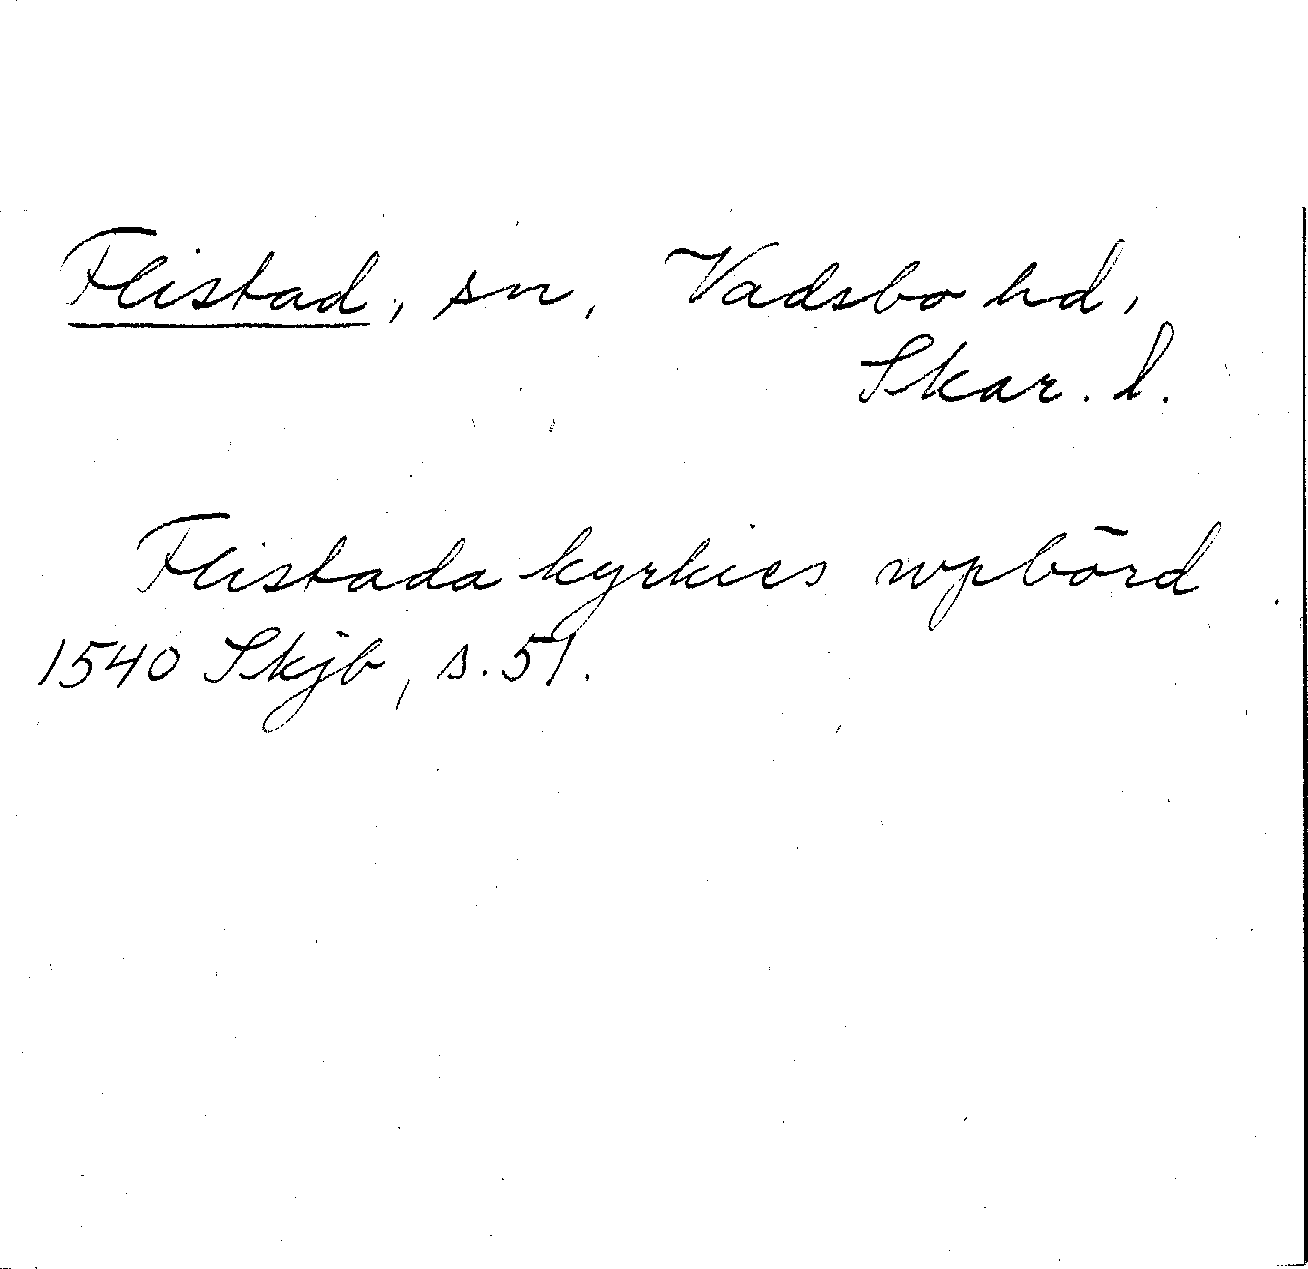 Flistad, sn, Vadsbo hd,
Skar. l.
Flistada kyrkies wpbörd
1540 Skjb, s. 51.